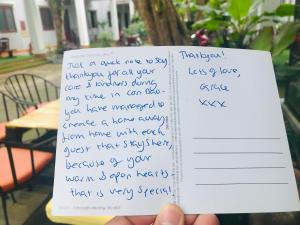 Just a quick note to say
thankyou for all your
care & kindness during
my time in Can Tho-
you have managed to
create a home away
from home with each
guest that stays here,
because of your
warm & open hearts
that is very special!
Thankyou!
Lots of love,
Grace
xxx